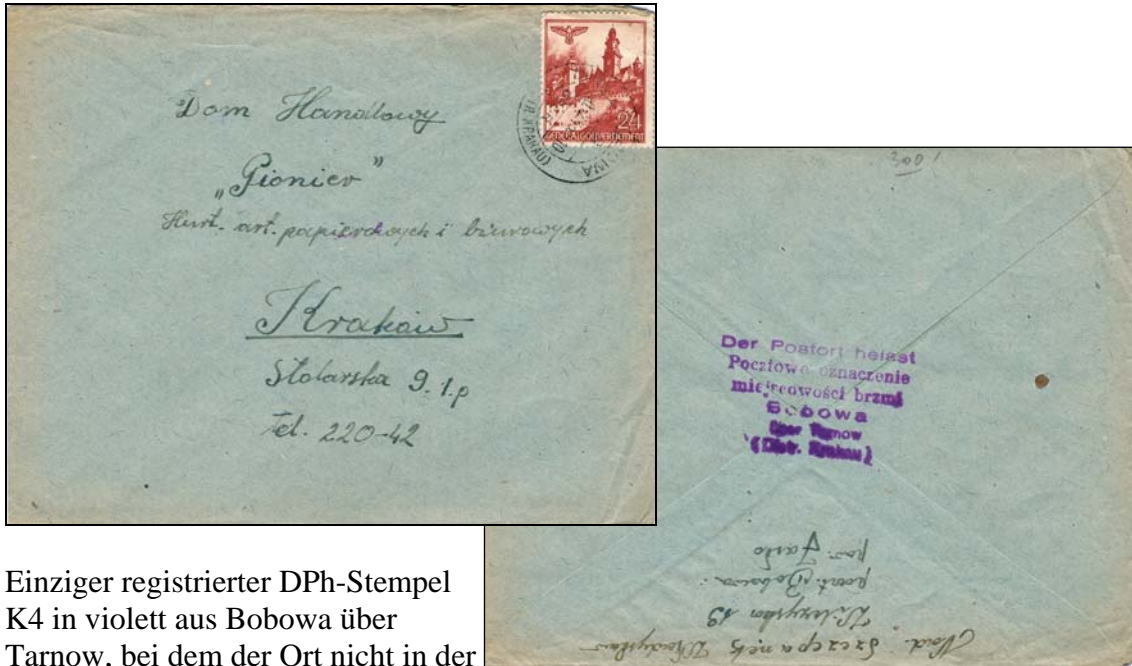 Dom Handlowy
„Pionier”
Hurt. art. papierowych i biurowych
Kraków
Stolarska 9. I.p
tel. 220-42
24
GENERALGOUVERNEMENT
(DISTR. KRAKAU)
300
Der Postort heisst
Pocztowe oznaczenie
miejscowości brzmi
Bobowa
über Tarnow
(Distr. Krakau)
Nad. Szczepanek Władysław
19
poczt. Bobowa
pow. Jasło
Einziger registrierter DPh-Stempel
K4 in violett aus Bobowa über
Tarnow, bei dem der Ort nicht in der